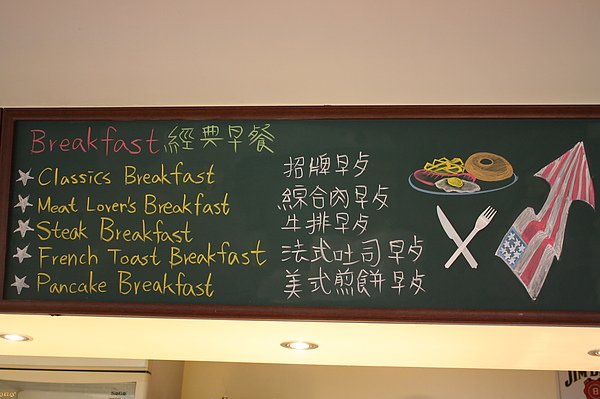 Breakfast 經典早餐
Classics Breakfast 招牌早歺
Meat Lover's Breakfast 綜合肉早歺
Steak Breakfast 牛排早歺
French Toast Breakfast 法式吐司早歺
Pancake Breakfast 美式煎餅早歺